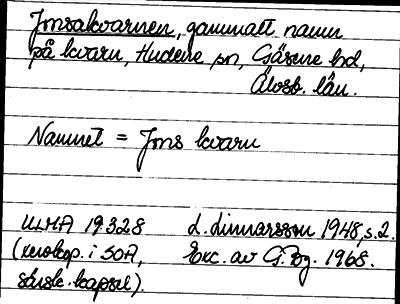 Jonsakvarnen, gammalt namn
på kvarn, Hudene sn, Gäsene hd,
Älvsb. län.
Namnet = Jons kvarn
ULMA 19328 L. Linnarsson 1948, s. 2.
(xerokop. i SOA, Exc. av G. Bg. 1968.
särsk. kapsel).